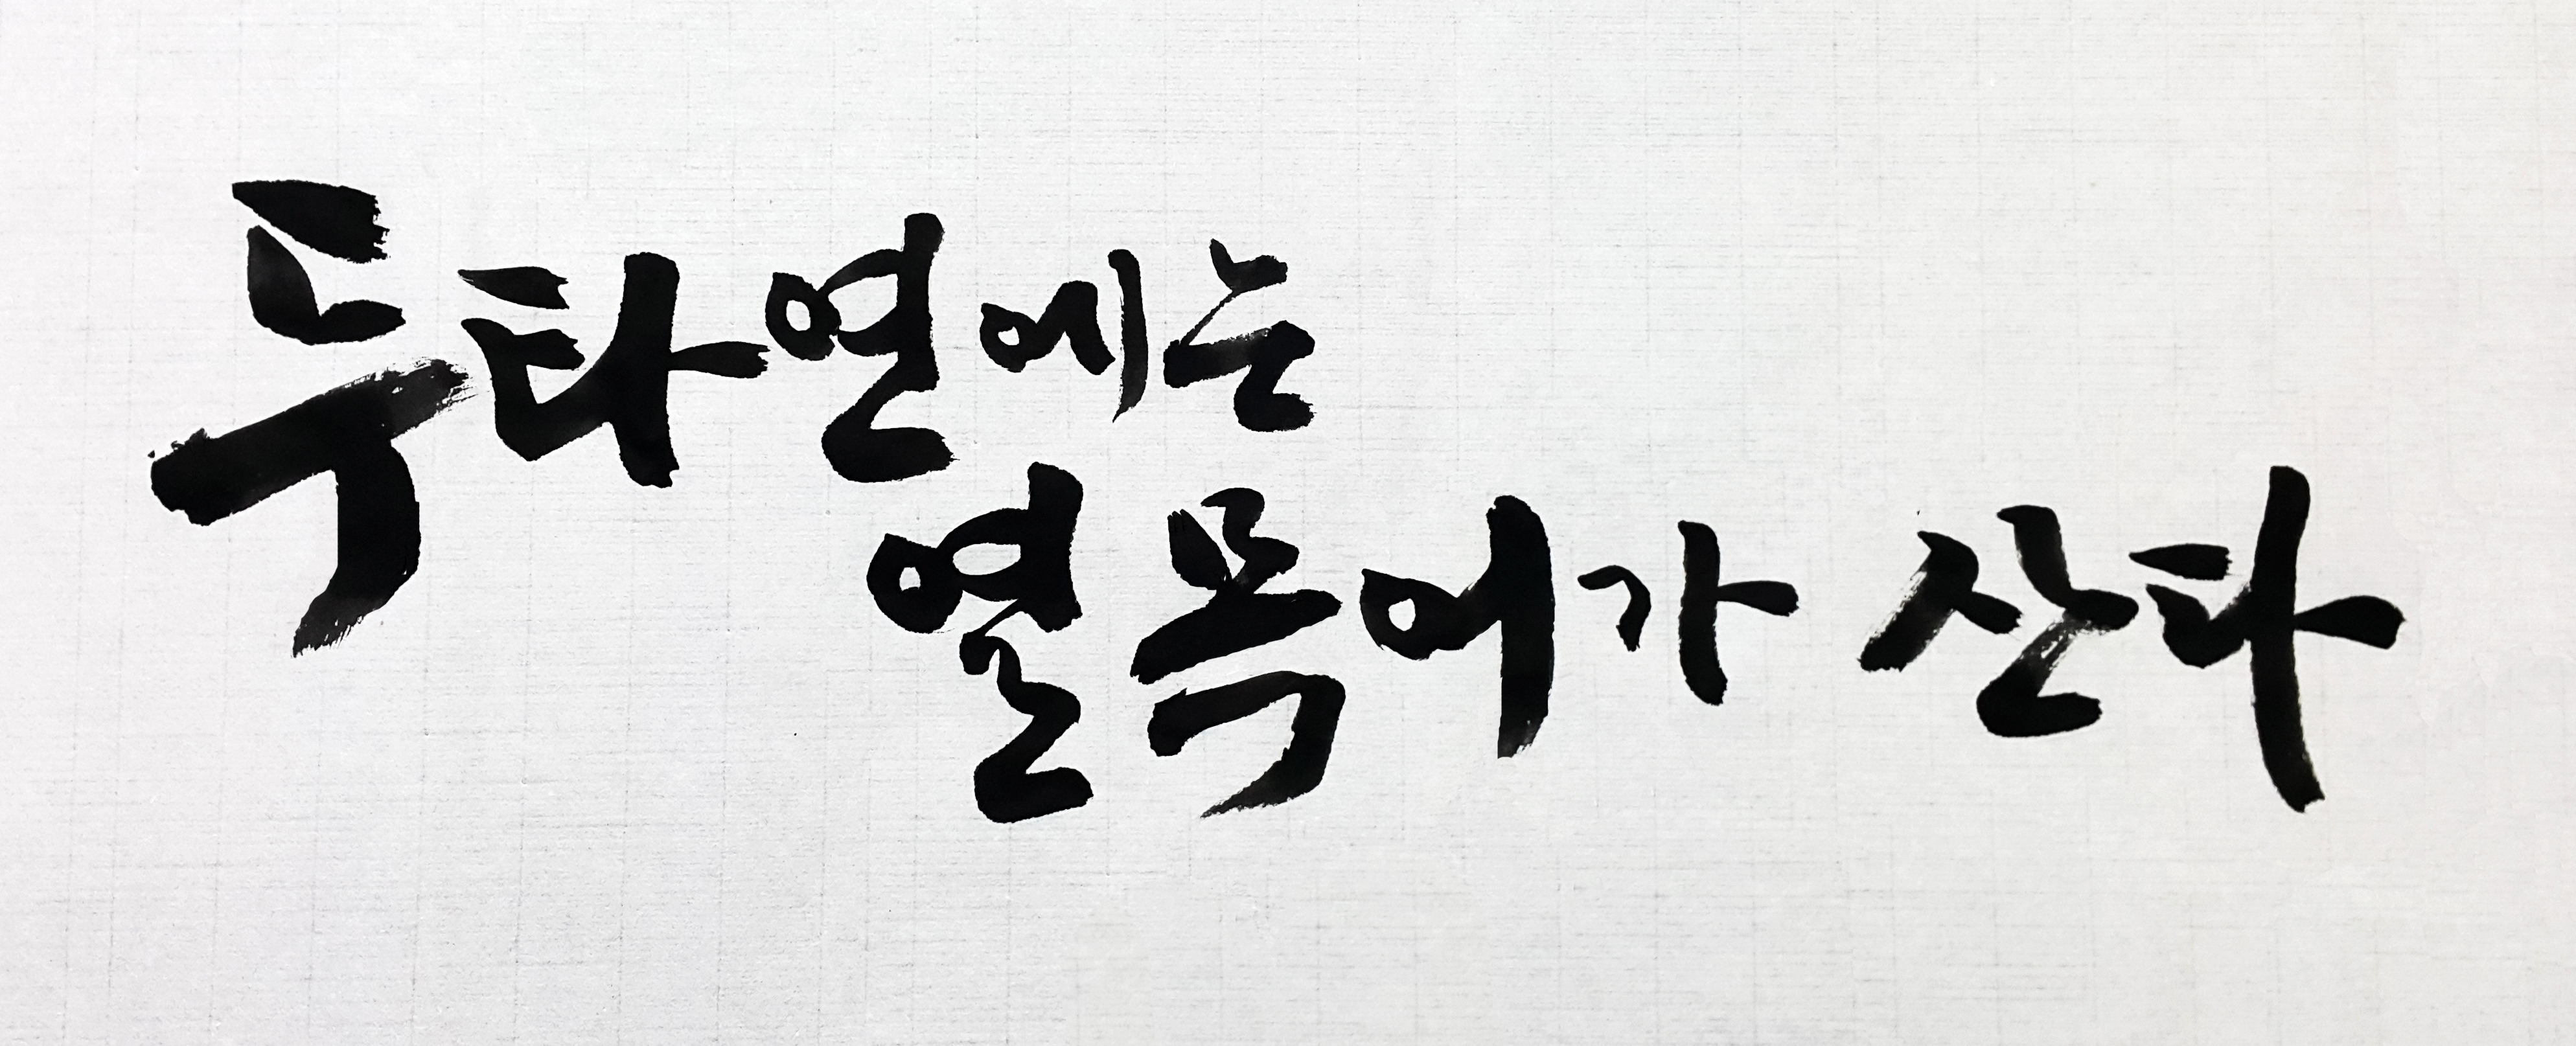 두타연에는
열목어가 산다